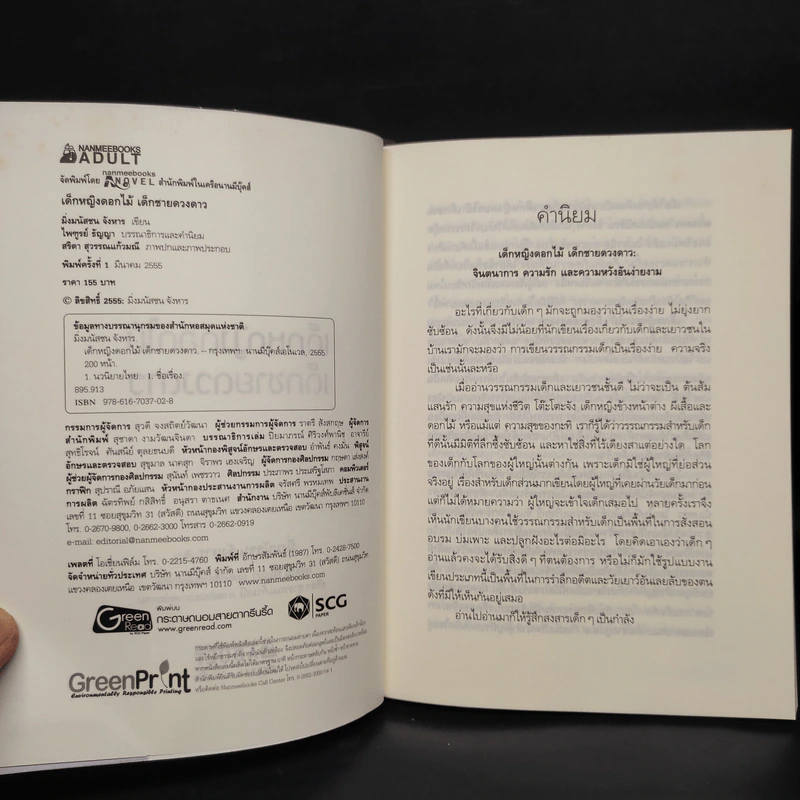 NANMEEBOOKS
ADULT
จัดพิมพ์โดย nanmeebooks NOVEL สำนักพิมพ์ในเครือนานมีบุ๊คส์
เด็กหญิงดอกไม้ เด็กชายดวงดาว
มิ่งมนัสชน จังหาร เขียน
ไพฑูรย์ ธัญญา บรรณาธิการและคำนิยม
สริตา สุวรรณแก้วมณี ภาพปกและภาพประกอบ
พิมพ์ครั้งที่ 1 มีนาคม 2555
ราคา 155 บาท
© ลิขสิทธิ์ 2555: มิ่งมนัสชน จังหาร
ข้อมูลทางบรรณานุกรมของสำนักหอสมุดแห่งชาติ
มิ่งมนัสชน จังหาร.
เด็กหญิงดอกไม้ เด็กชายดวงดาว. – กรุงเทพฯ: นานมีบุ๊คส์เอโนเวล, 2555.
200 หน้า.
1. นวนิยายไทย. I. ชื่อเรื่อง.
895.913
ISBN 978-616-7037-02-8
กรรมการผู้จัดการ สุวดี จงสถิตย์วัฒนา ผู้ช่วยกรรมการผู้จัดการ ราตรี สังสกฤษ ผู้จัดการ
สำนักพิมพ์ สุชาดา งามวัฒนจินดา บรรณาธิการเล่ม ปิยมาภรณ์ ศิริวงศ์พานิช อาจารีย์
สุทธิโรจน์ ศันสนีย์ ดุลยธนบดี หัวหน้ากองพิสูจน์อักษรและตรวจสอบ อำพันธ์ คงมั่น พิสูจน์
อักษรและตรวจสอบ สุขุมาล นาคสุก จิราพร เฮงเจริญ ผู้จัดการกองศิลปกรรม กฤษดา
ผู้ช่วยผู้จัดการกองศิลปกรรม สุนันท์ เพชรวาว ศิลปกรรม ประภาพร ประเสริฐโสภา คอมพิวเตอร์
กราฟิก สุปราณี อภัยแสน หัวหน้ากองประสานงานการผลิต จรัสศรี พรหมเทพ ประสานงาน
การผลิต ฉัตรทิพย์ กสิสิทธิ์ อนุสรา ดาธเนศ สำนักงาน บริษัท นานมีบุ๊คส์พับลิเคชันส์ จำกัด
เลขที่ 11 ซอยสุขุมวิท 31 (สวัสดี) ถนนสุขุมวิท แขวงคลองเตยเหนือ เขตวัฒนา กรุงเทพฯ 10110
โทร. 0-2670-9800, 0-2662-3000 โทรสาร 0-2662-0919
e-mail: editorial@nanmeebooks.com
เพลตที่ โอเชี่ยนฟิล์ม โทร. 0-2215-4760 พิมพ์ที่ อักษรสัมพันธ์ (1987) โทร. 0-2428-7500
จัดจำหน่ายทั่วประเทศ บริษัท นานมีบุ๊คส์ จำกัด เลขที่ 11 ซอยสุขุมวิท 31 (สวัสดี) ถนนสุขุมวิท
แขวงคลองเตยเหนือ เขตวัฒนา กรุงเทพฯ 10110 www.nanmeebooks.com
Green Read
พิมพ์บน
กระดาษถนอมสายตากรีนรี้ด
www.greenread.com
SCG
PAPER
GreenPrint
Environmentally Responsible Printing
คำนิยม
เด็กหญิงดอกไม้ เด็กชายดวงดาว:
จินตนาการ ความรัก และความหวังอันง่ายงาม
อะไรที่เกี่ยวกับเด็ก ๆ มักจะถูกมองว่าเป็นเรื่องง่าย ไม่ยุ่งยาก
ซับซ้อน ดังนั้นจึงมีไม่น้อยที่นักเขียนเรื่องเกี่ยวกับเด็กและเยาวชนใน
บ้านเรามักจะมองว่า การเขียนวรรณกรรมเด็กเป็นเรื่องง่าย ความจริง
เป็นเช่นนั้นละหรือ
เมื่ออ่านวรรณกรรมเด็กและเยาวชนชั้นดี ไม่ว่าจะเป็น ต้นส้ม
แสนรัก ความสุขแห่งชีวิต โต๊ะโตะจัง เด็กหญิงข้างหน้าต่าง ผีเสื้อและ
ดอกไม้ หรือแม้แต่ ความสุขของกะทิ เราก็รู้ได้ว่าวรรณกรรมสำหรับเด็ก
ที่ดีนั้นมีมิติที่ลึกซึ้งซับซ้อน และหาใช่สิ่งที่ไร้เดียงสาแต่อย่างใด โลก
ของเด็กกับโลกของผู้ใหญ่นั้นต่างกัน เพราะเด็กมิใช่ผู้ใหญ่ที่ย่อส่วน
จริงอยู่ เรื่องสำหรับเด็กส่วนมากเขียนโดยผู้ใหญ่ที่เคยผ่านวัยเด็กมาก่อน
แต่ก็ไม่ได้หมายความว่า ผู้ใหญ่จะเข้าใจเด็กเสมอไป หลายครั้งเราจึง
เห็นนักเขียนบางคนใช้วรรณกรรมสำหรับเด็กเป็นพื้นที่ในการสั่งสอน
อบรม บ่มเพาะ และปลูกฝังอะไรต่อมิอะไร โดยคิดเอาเองว่าเด็ก ๆ
อ่านแล้วคงจะได้รับสิ่งดี ๆ ที่ตนต้องการ หรือไม่ก็มักใช้รูปแบบงาน
เขียนประเภทนี้เป็นพื้นที่ในการรำลึกอดีตและวัยเยาว์อันเลยลับของตน
ดังที่มีให้เห็นกันอยู่เสมอ
อ่านไปอ่านมาก็ให้รู้สึกสงสารเด็ก ๆ เป็นกำลัง